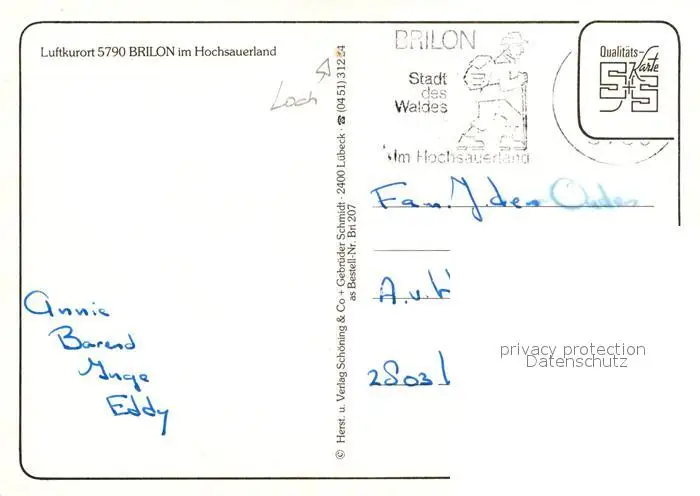 Luftkurort 5790 BRILON im Hochsauerland
Loch
BRILON
Stadt
des
Waldes
im Hochsauerland
Qualitäts-
Karte
S+S
Fam. J. den Ouden
A. v.
2803
Annie
Barend
Inge
Eddy
© Herst. u. Verlag Schöning & Co + Gebrüder Schmidt · 2400 Lübeck · ☎ (0451) 31224
as Bestell-Nr. Bri 207
privacy protection
Datenschutz